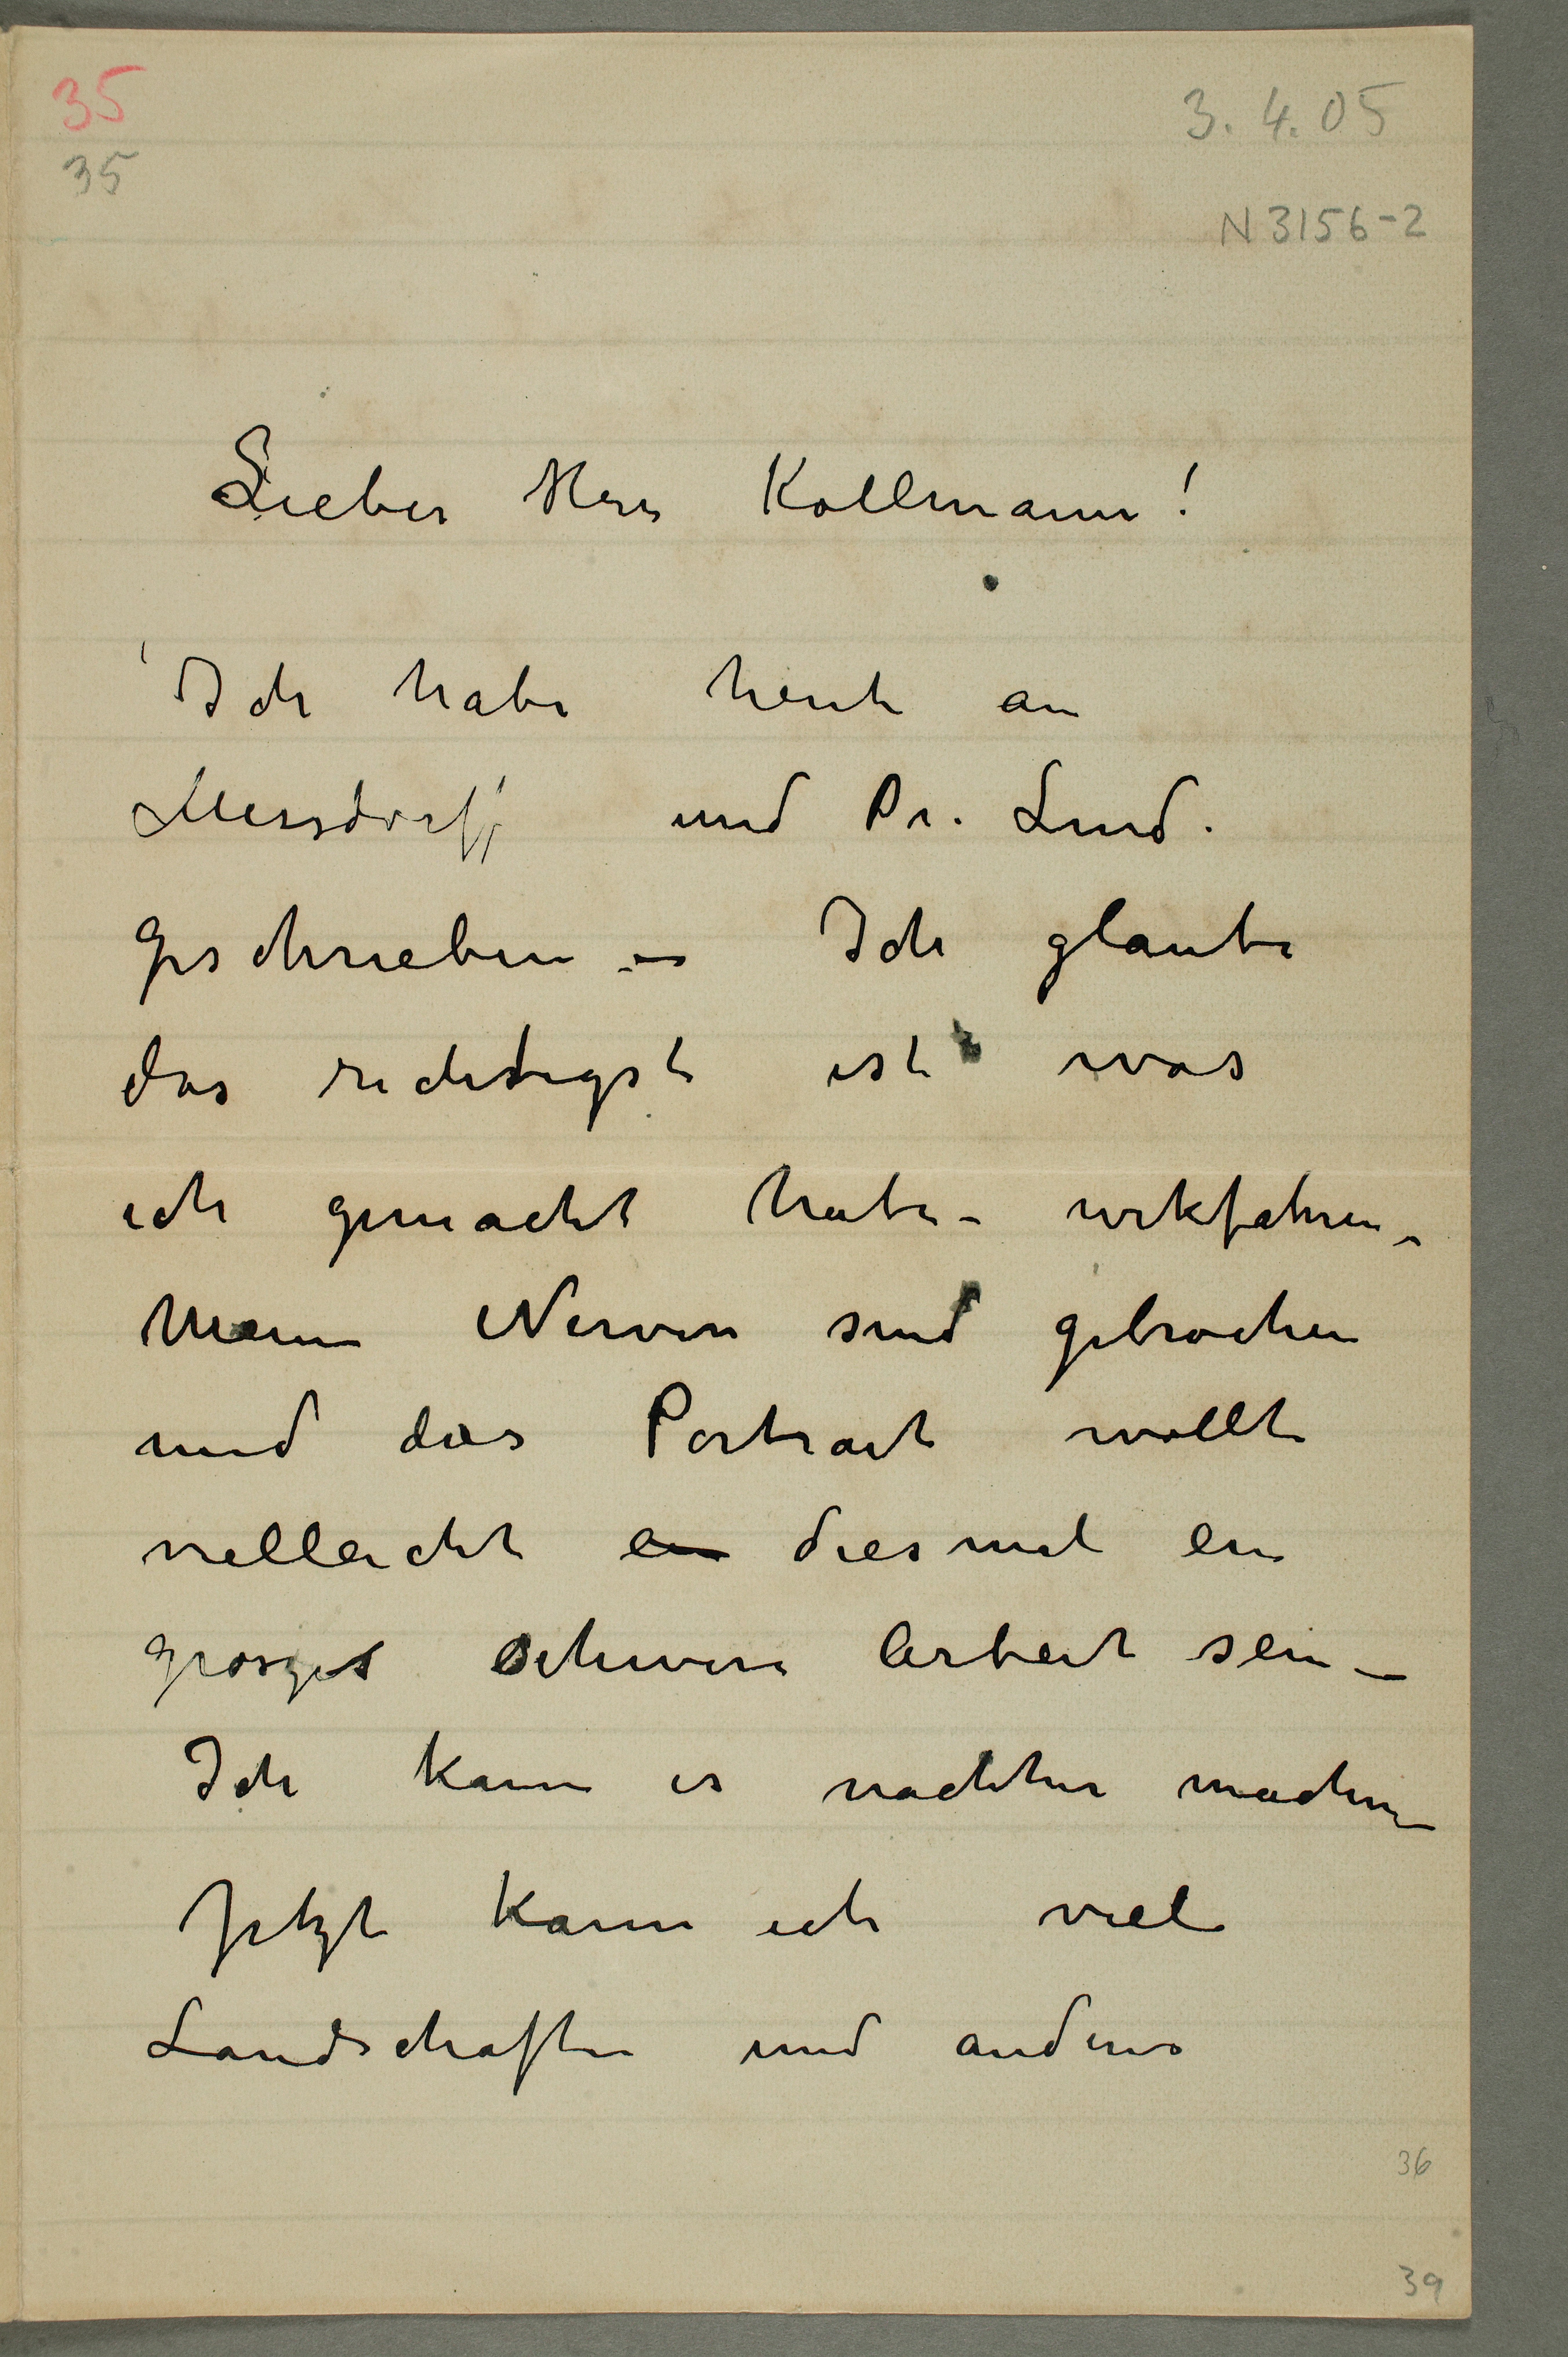 35
35
3. 4. 05
N 3156-2
Lieber Herr Kollmann!
Ich habe heute an
Mersdorff und Dr. Lind.
geschrieben – Ich glaube
das richtigste ist was
ich gemacht habe – wekfahren –
Meine Nerven sind gebrochen
und das Portrait wollte
vielleicht ein diesmal ein
groszes schwere Arbeit sein –
Ich kann es nachher machen –
Jetzt kann ich viel
Landschafte und anderes
36
39